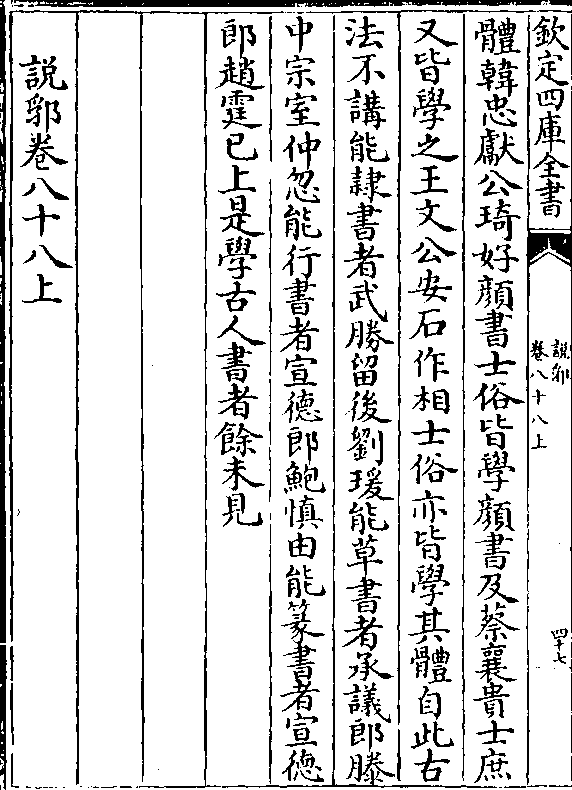 欽定四庫全書
說郛
卷八十八上
四十七
體韓忠獻公琦好顔書士俗皆學顔書及蔡襄貴士庶
又皆學之王文公安石作相士俗亦皆學其體自此古
法不講能隸書者武勝留後劉瑗能草書者承議郎滕
中宗室仲忽能行書者宣德郎鮑慎由能篆書者宣德
郎趙霆已上是學古人書者餘未見
說郛卷八十八上